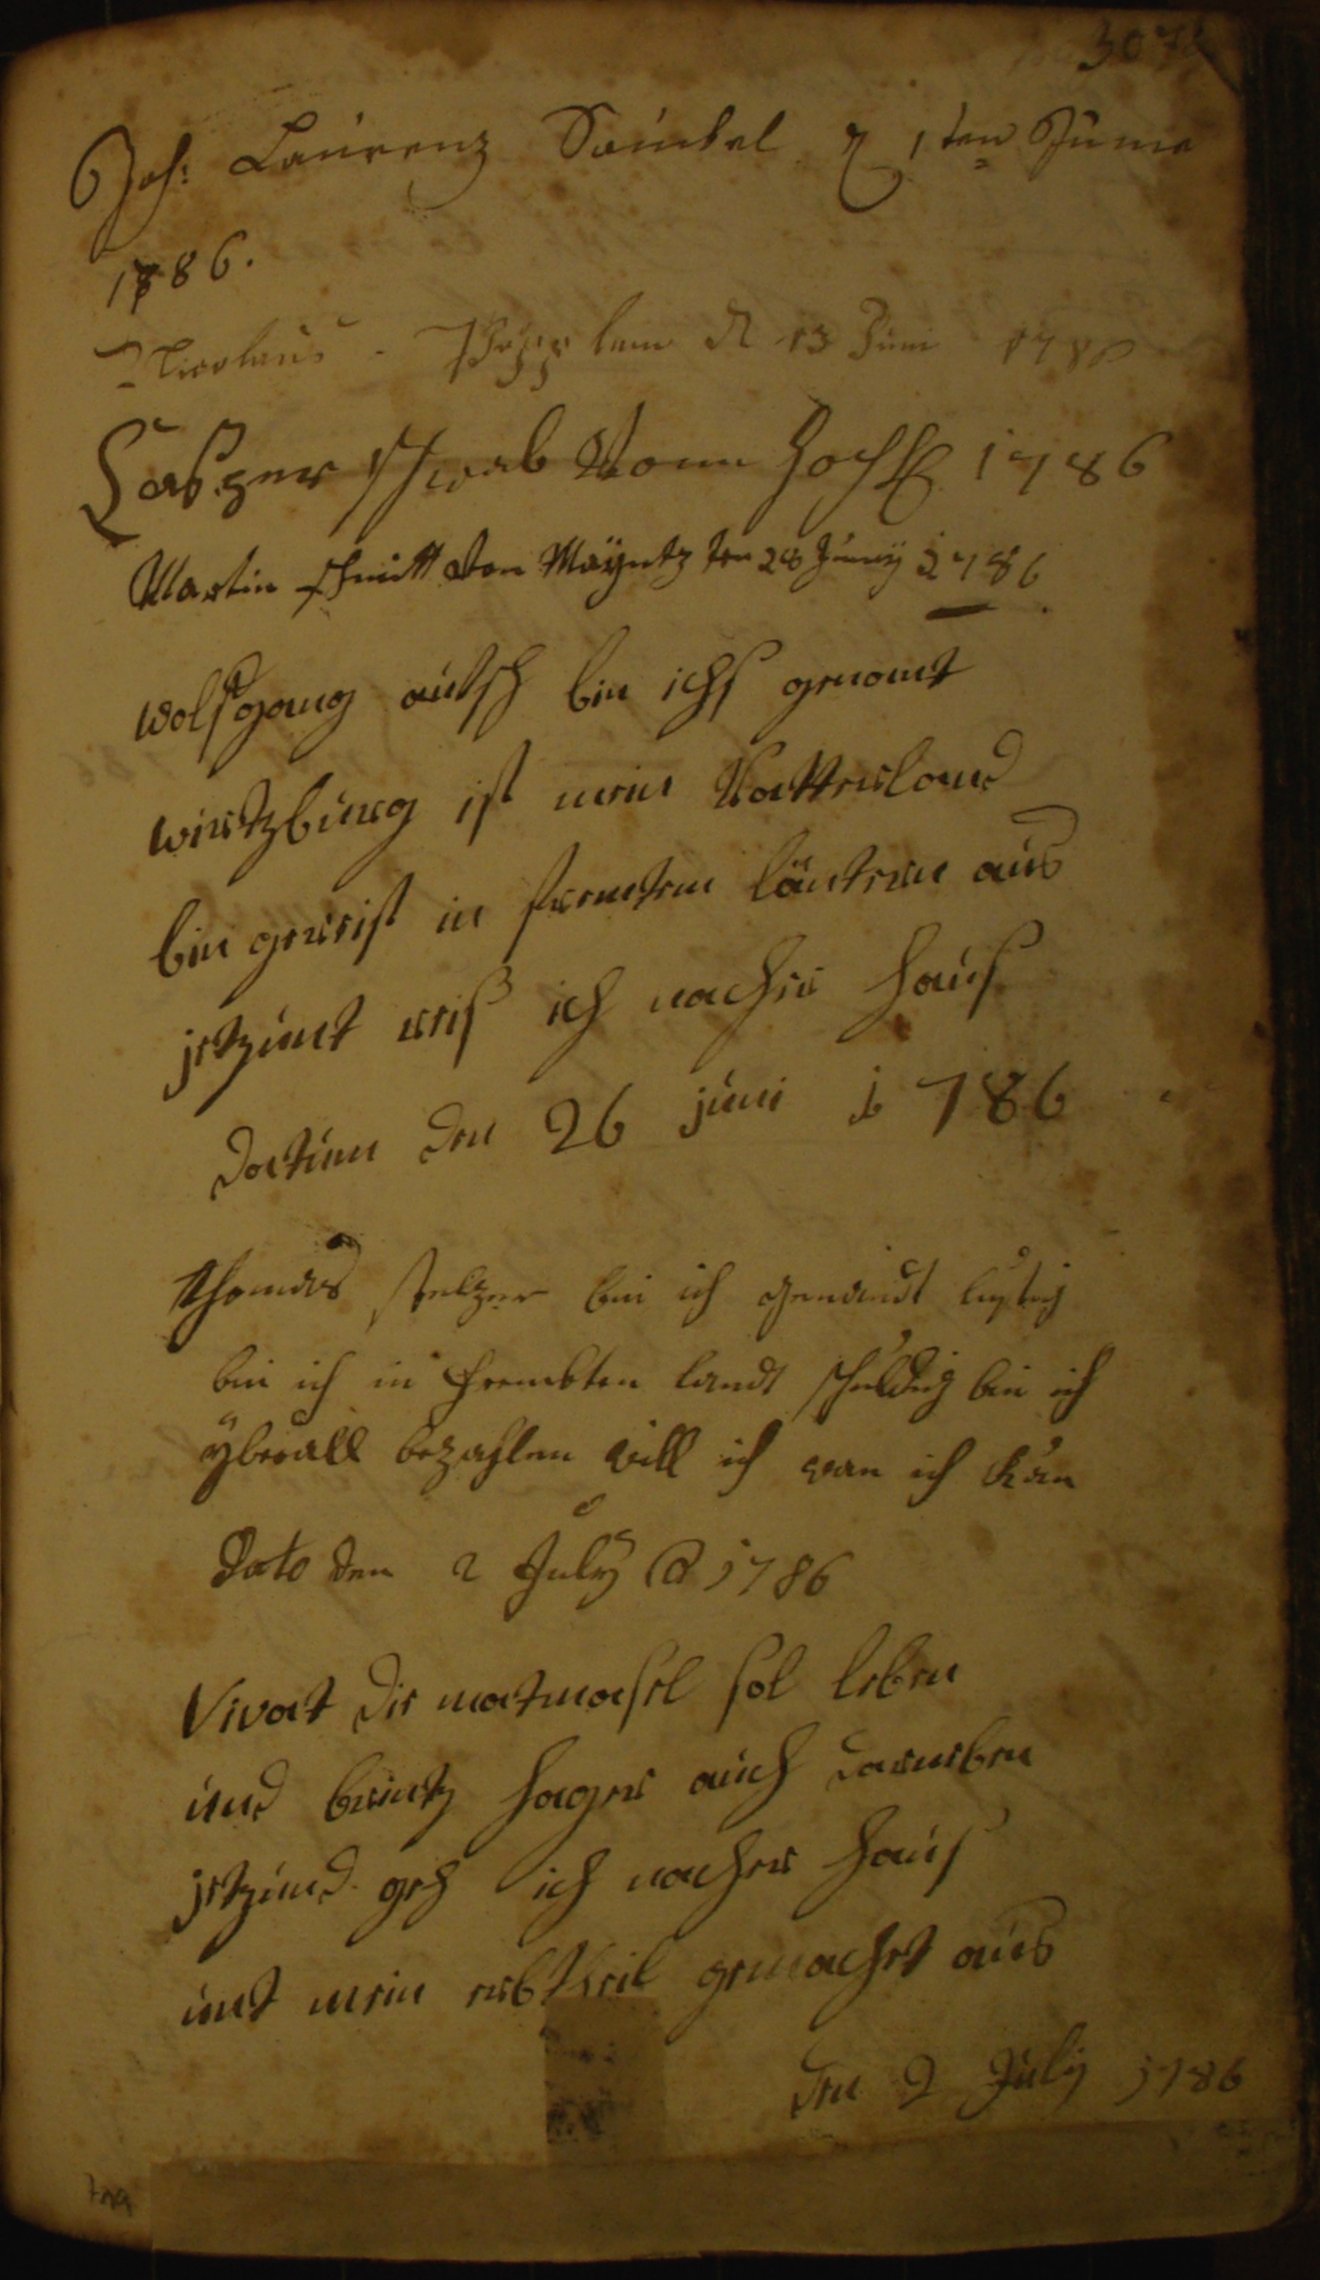 307
Joh: Laurenz Sünckel d 1ten Junii
1786.
Nicolaus den 13 Juni 1786
Casper schwab Vonn Hoff 1786
Martin schmitt von Mayntz den 28 Juny 1786
wolfgang autsch bin ichs genant
wirtzburg ist mein Vatterland
bin gereist in fremten läntern aus
jetzunt reis ich nacher haus
datum den 26 juni 1786
Thomas stelzer bin ich genandt lustig
bin ich in frembten landt schuldig bin ich
yberall bezahlen will ich wan ich kan
Dato den 2 July @ 1786
Vivat die matmasel sol leben
und brintz hager auch darneben
jetzund geh ich nacher haus
unt mein erbtheil gemachet aus
den 2 July 1786